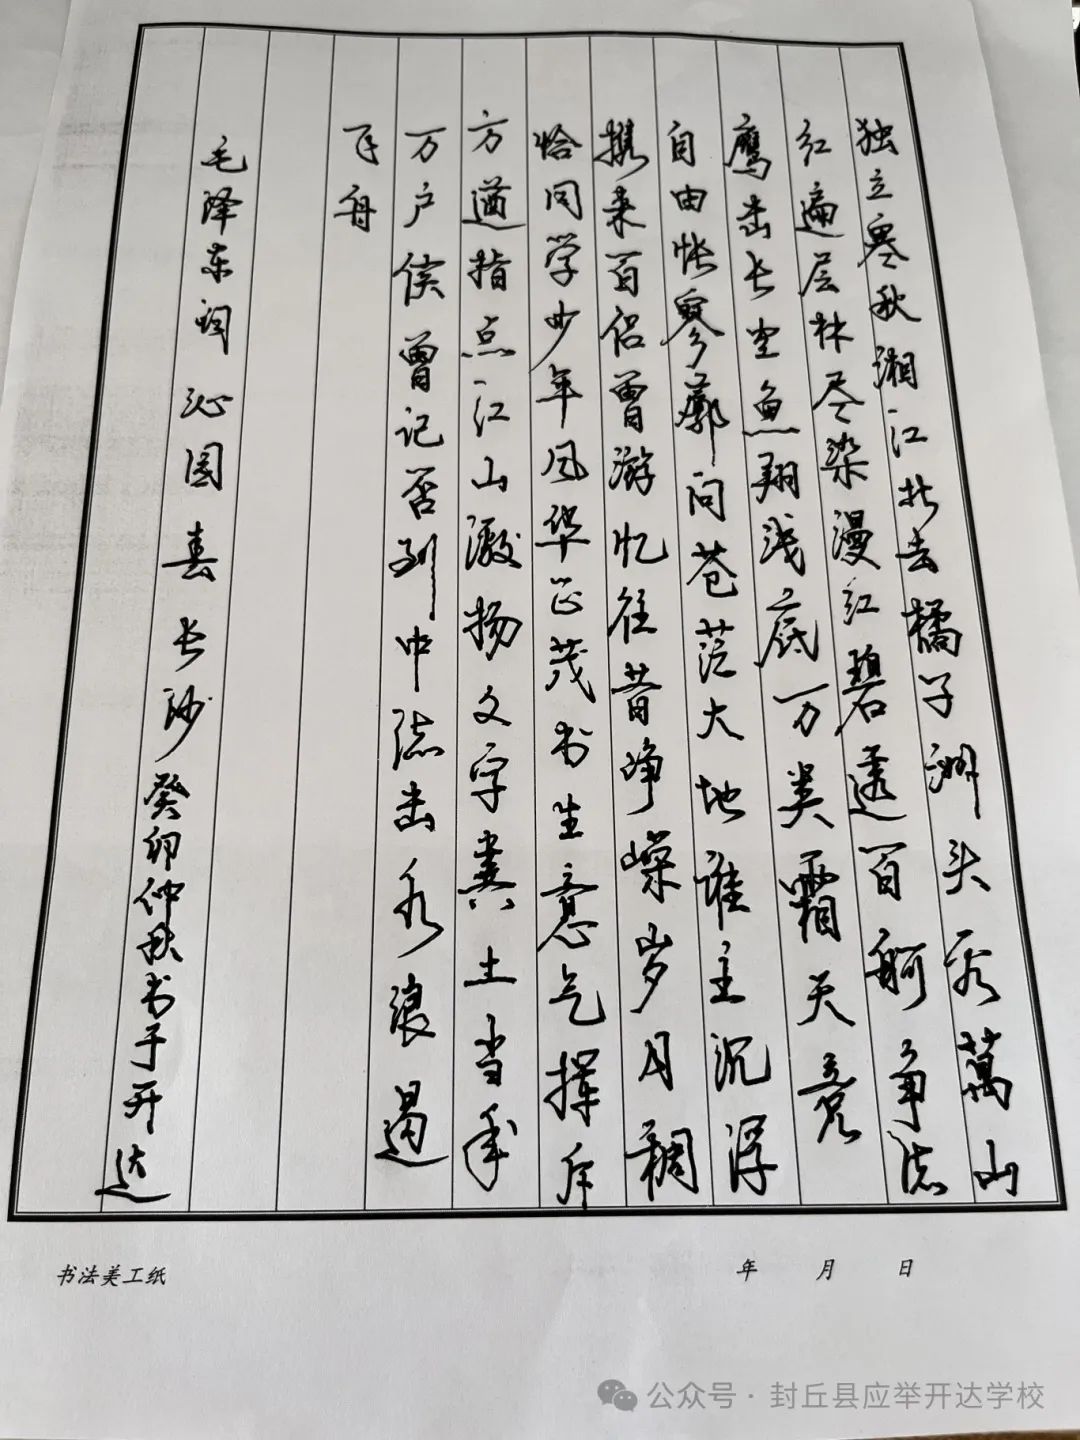 独立寒秋湘江北去橘子洲头看萬山
红遍层林尽染漫红碧透百舸争流
鹰击长空鱼翔浅底万类霜天竞
自由怅寥廓问苍茫大地谁主沉浮
携来百侣曾游忆往昔峥嵘岁月稠
恰同学少年风华正茂书生意气挥斥
方遒指点江山激扬文字粪土当年
万户侯曾记否到中流击水浪遏
飞舟
毛泽东词 沁园春 长沙 癸卯仲秋书于开达
书法美工纸 年 月 日
公众号·封丘县应举开达学校